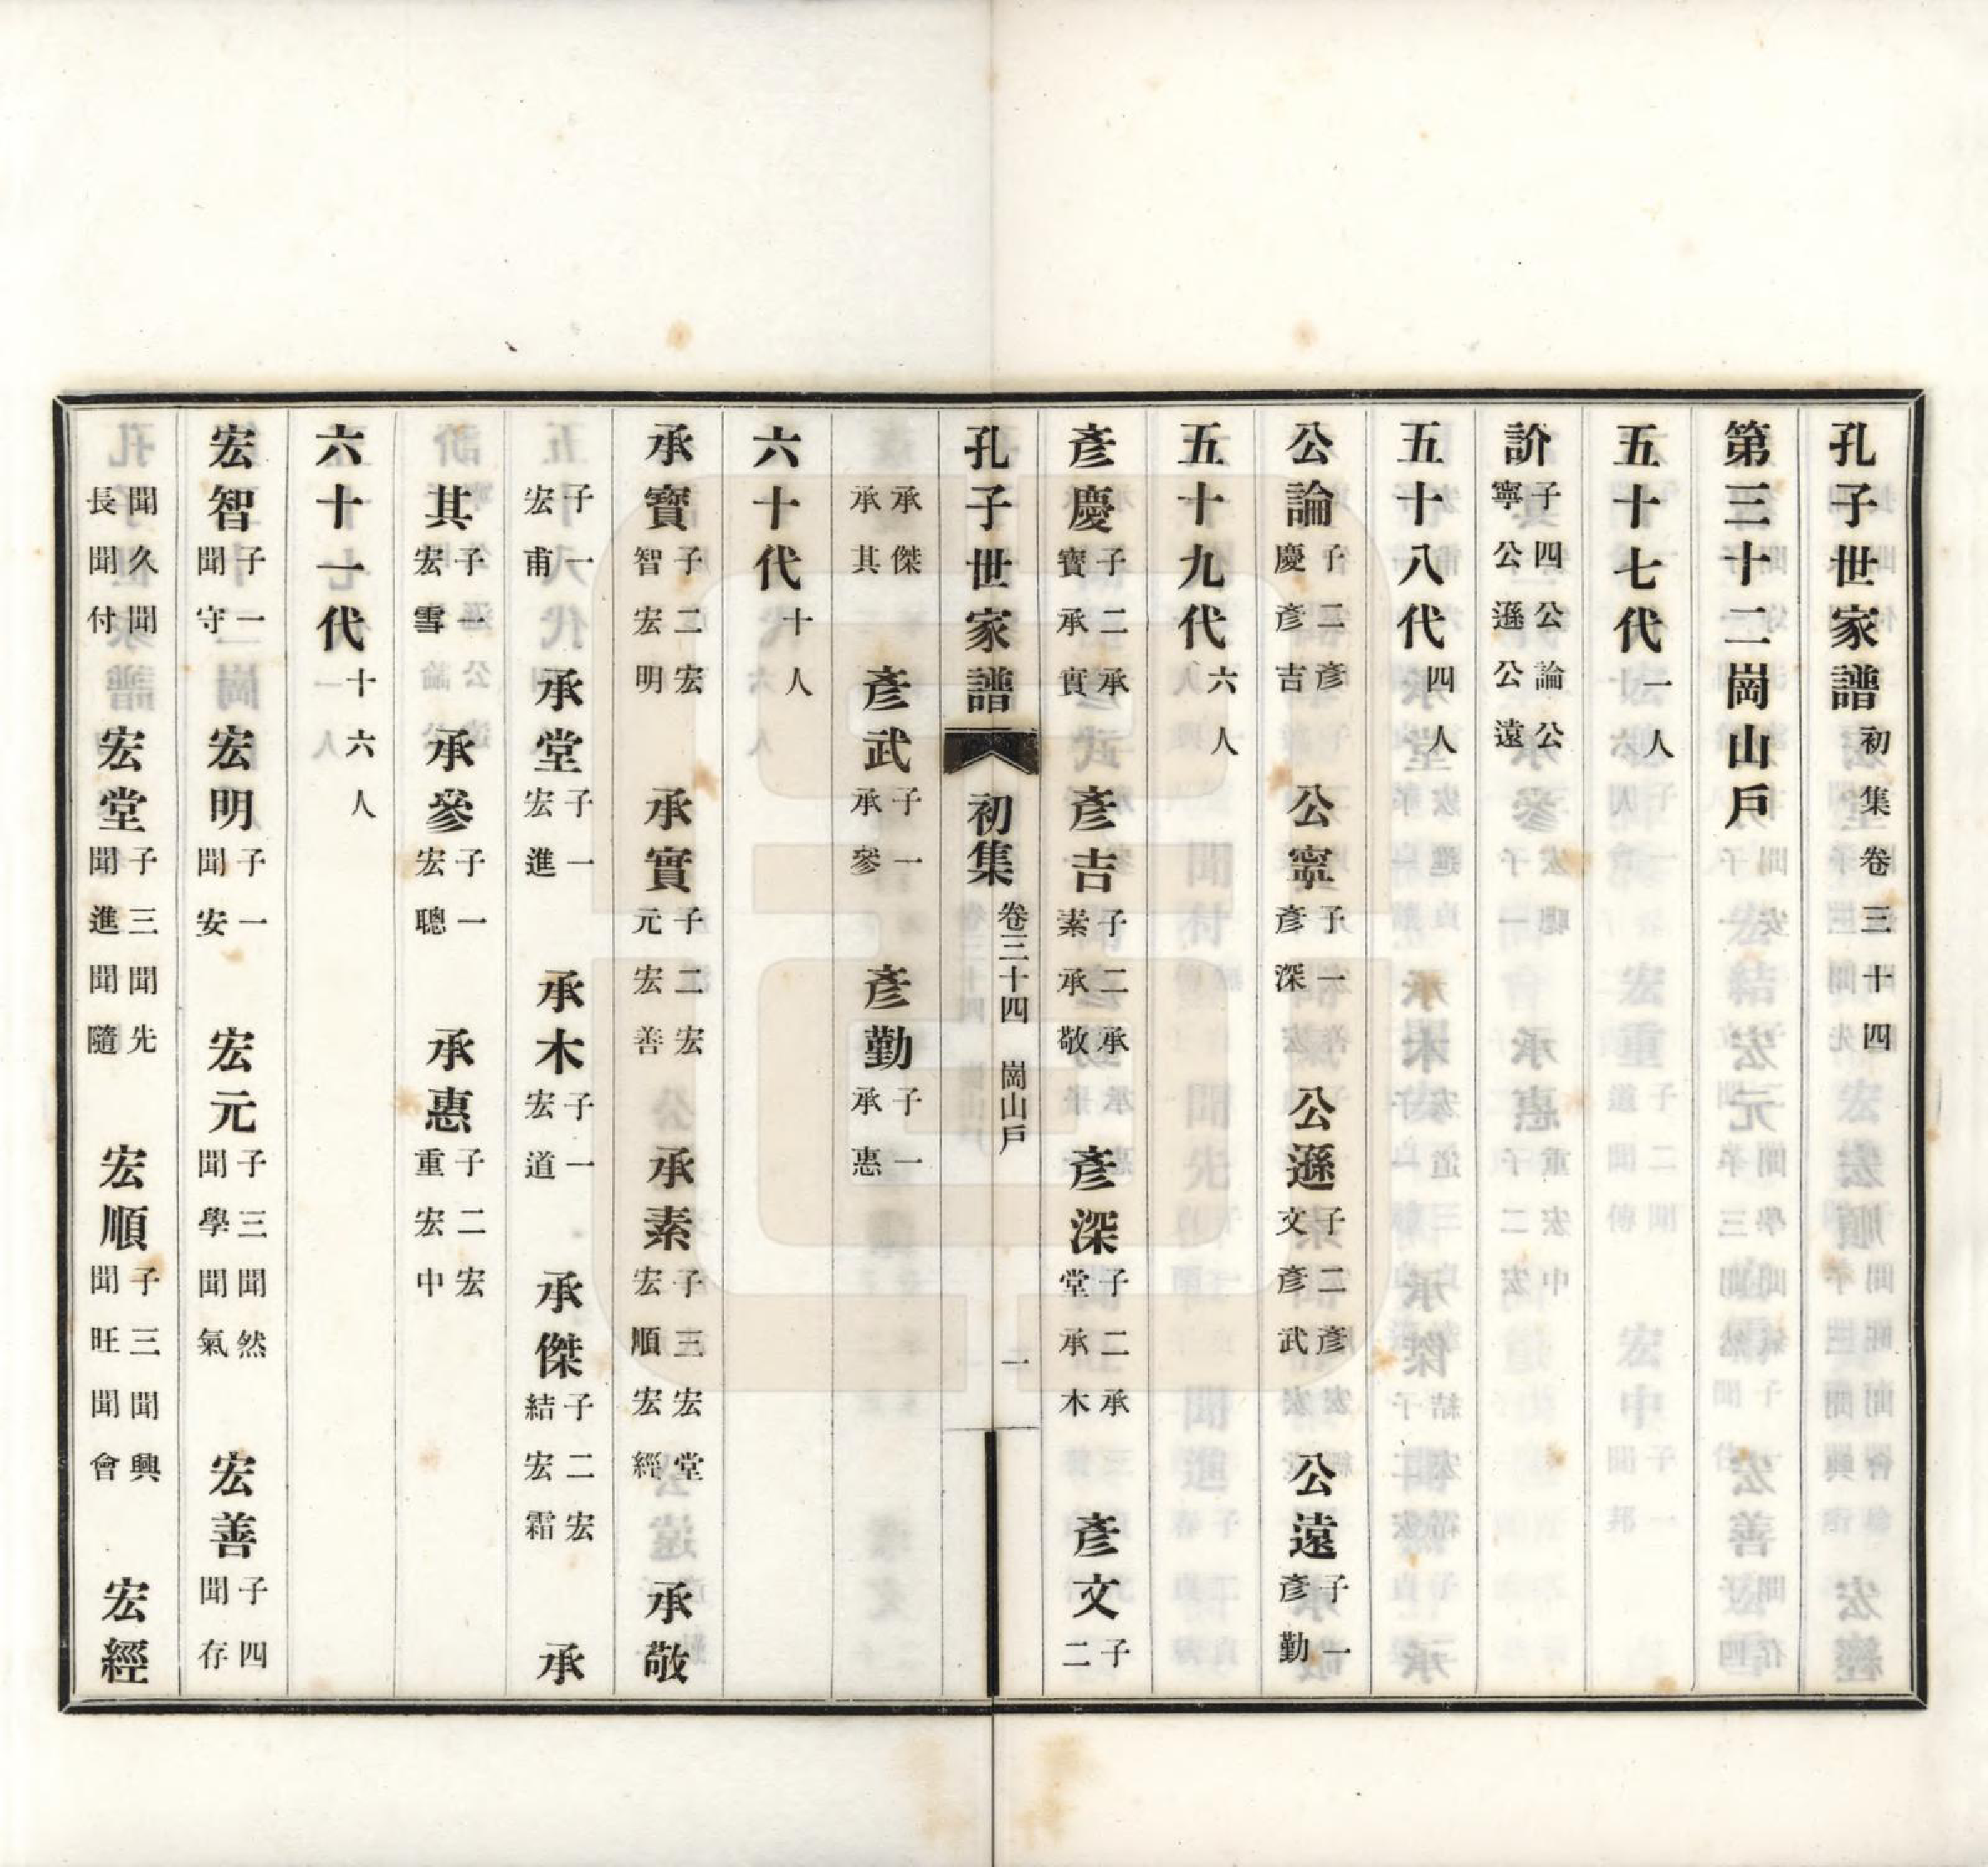 孔子世家譜初集卷三十四
第三十二崗山戶
五十七代一人
訜子四公論公寧公遜公遠
五十八代四人
公論子二彥慶彥吉 公寧子一彥深 公遜子二彥文彥武 公遠子一彥勤
五十九代六人
彥慶子二承寶承實 彥吉子二承素承敬 彥深子二承堂承木 彥文子二
孔子世家譜 初集 卷三十四 崗山戶 一
承傑承其 彥武子一承參 彥勤子一承惠
六十代十人
承寶子二宏智宏明 承實子二宏元宏善 承素子三宏堂宏順宏經 承敬
子一宏甫 承堂子一宏進 承木子一宏道 承傑子二宏結宏霜 承
其子一宏雪 承參子一宏聰 承惠子二宏重宏中
六十一代十六人
宏智子一聞守 宏明子一聞安 宏元子三聞學聞然聞氣 宏善子四聞存
聞長久聞聞付 宏堂子三聞進聞先聞隨 宏順子三聞旺聞興聞會 宏經